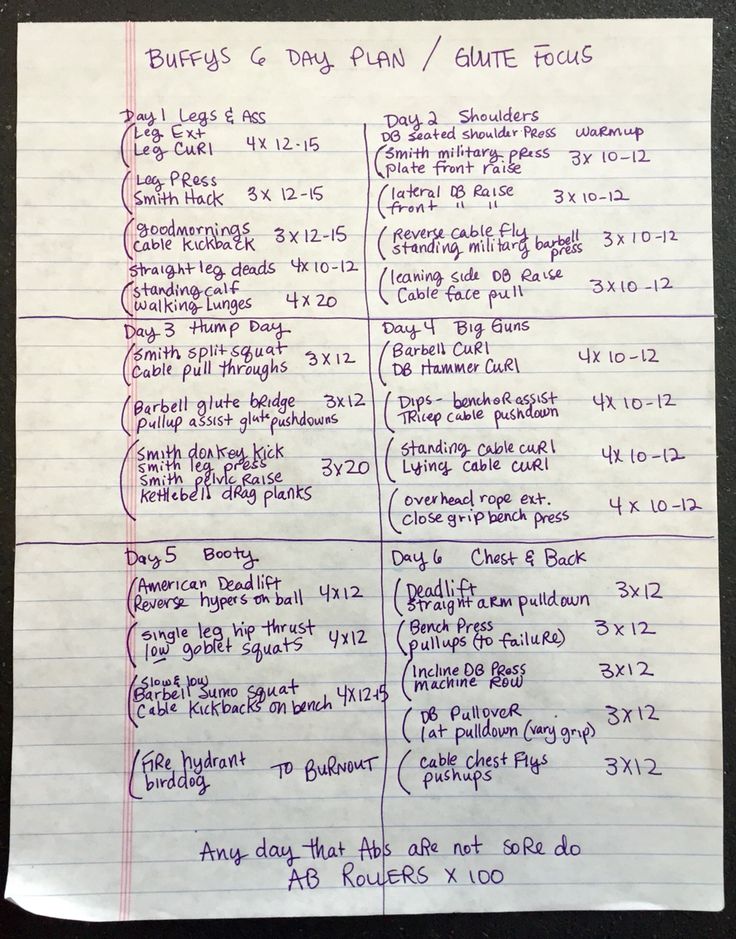 BUFFYS 6 DAY PLAN / GLUTE FOCUS
Day 1 Legs & Ass
Leg Ext
Leg Curl 4x 12-15
Leg Press
Smith Hack 3x 12-15
goodmornings
cable kickback 3x12-15
straight leg deads 4x10-12
standing calf
walking lunges 4x20
Day 2 Shoulders
DB seated shoulder press warmup
Smith military press
plate front raise 3x 10-12
lateral DB Raise
front " " 3x10-12
Reverse cable fly
standing military barbell press 3x10-12
leaning side DB Raise
Cable face pull 3x10-12
Day 3 Hump Day
Smith split squat
Cable pull throughs 3x12
Barbell glute bridge 3x12
pullup assist glute pushdowns
Smith donkey kick
Smith leg press
Smith pelvic Raise 3x20
Kettlebell drag planks
Day 4 Big Guns
Barbell Curl
DB Hammer Curl 4x 10-12
Dips - bench or assist
Tricep cable pushdown 4x 10-12
Standing cable curl
Lying cable curl 4x 10-12
overhead rope ext.
close grip bench press 4x10-12
Day 5 Booty
American Deadlift
Reverse hypers on ball 4x12
single leg hip thrust
low goblet squats 4x12
slow & low
Barbell Sumo squat
Cable Kickbacks on bench 4x12-15
Fire hydrant
birddog TO BURNOUT
Day 6 Chest & Back
Deadlift
straight arm pulldown 3x12
Bench Press
pullups (to failure) 3x12
Incline DB Press
machine Row 3x12
DB Pullover
lat pulldown (vary grip) 3x12
cable chest flys
pushups 3x12
Any day that Abs are not sore do
AB ROLLERS x 100